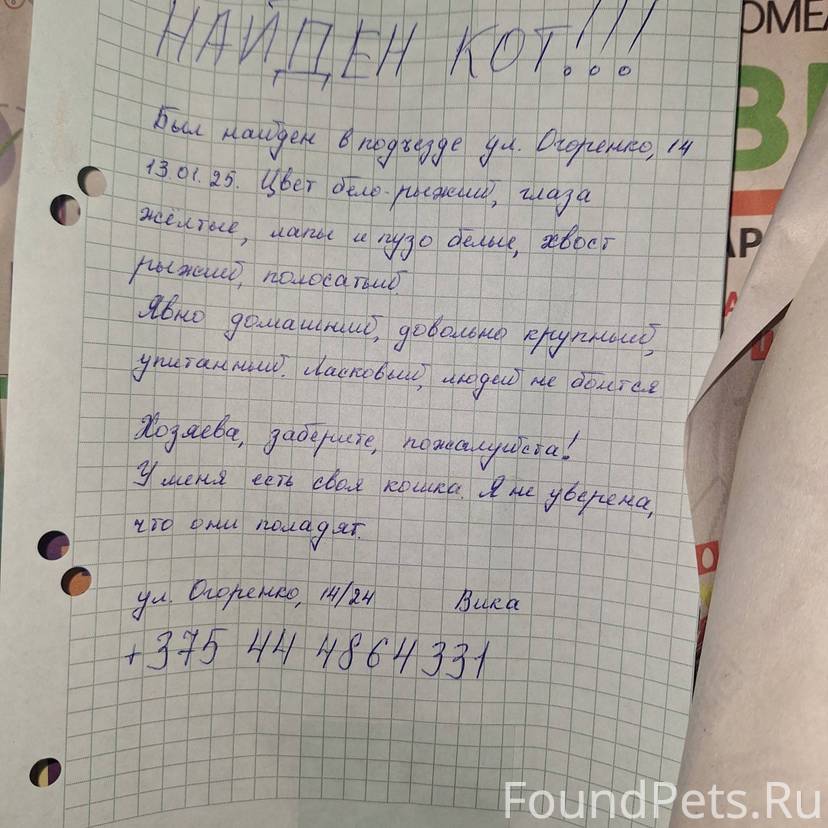 НАЙДЕН КОТ!!!
Был найден в подъезде ул. Огоренко, 14
13.01.25. Цвет бело-рыжий, глаза
жёлтые, лапы и пузо белые, хвост
рыжий, полосатый.
Явно домашний, довольно крупный,
упитанный. Ласковый, людей не боится
Хозяева, заберите, пожалуйста!
У меня есть своя кошка. Я не уверена,
что они поладят.
ул. Огоренко, 14/24 Вика
+375 44 4864331
FoundPets.Ru